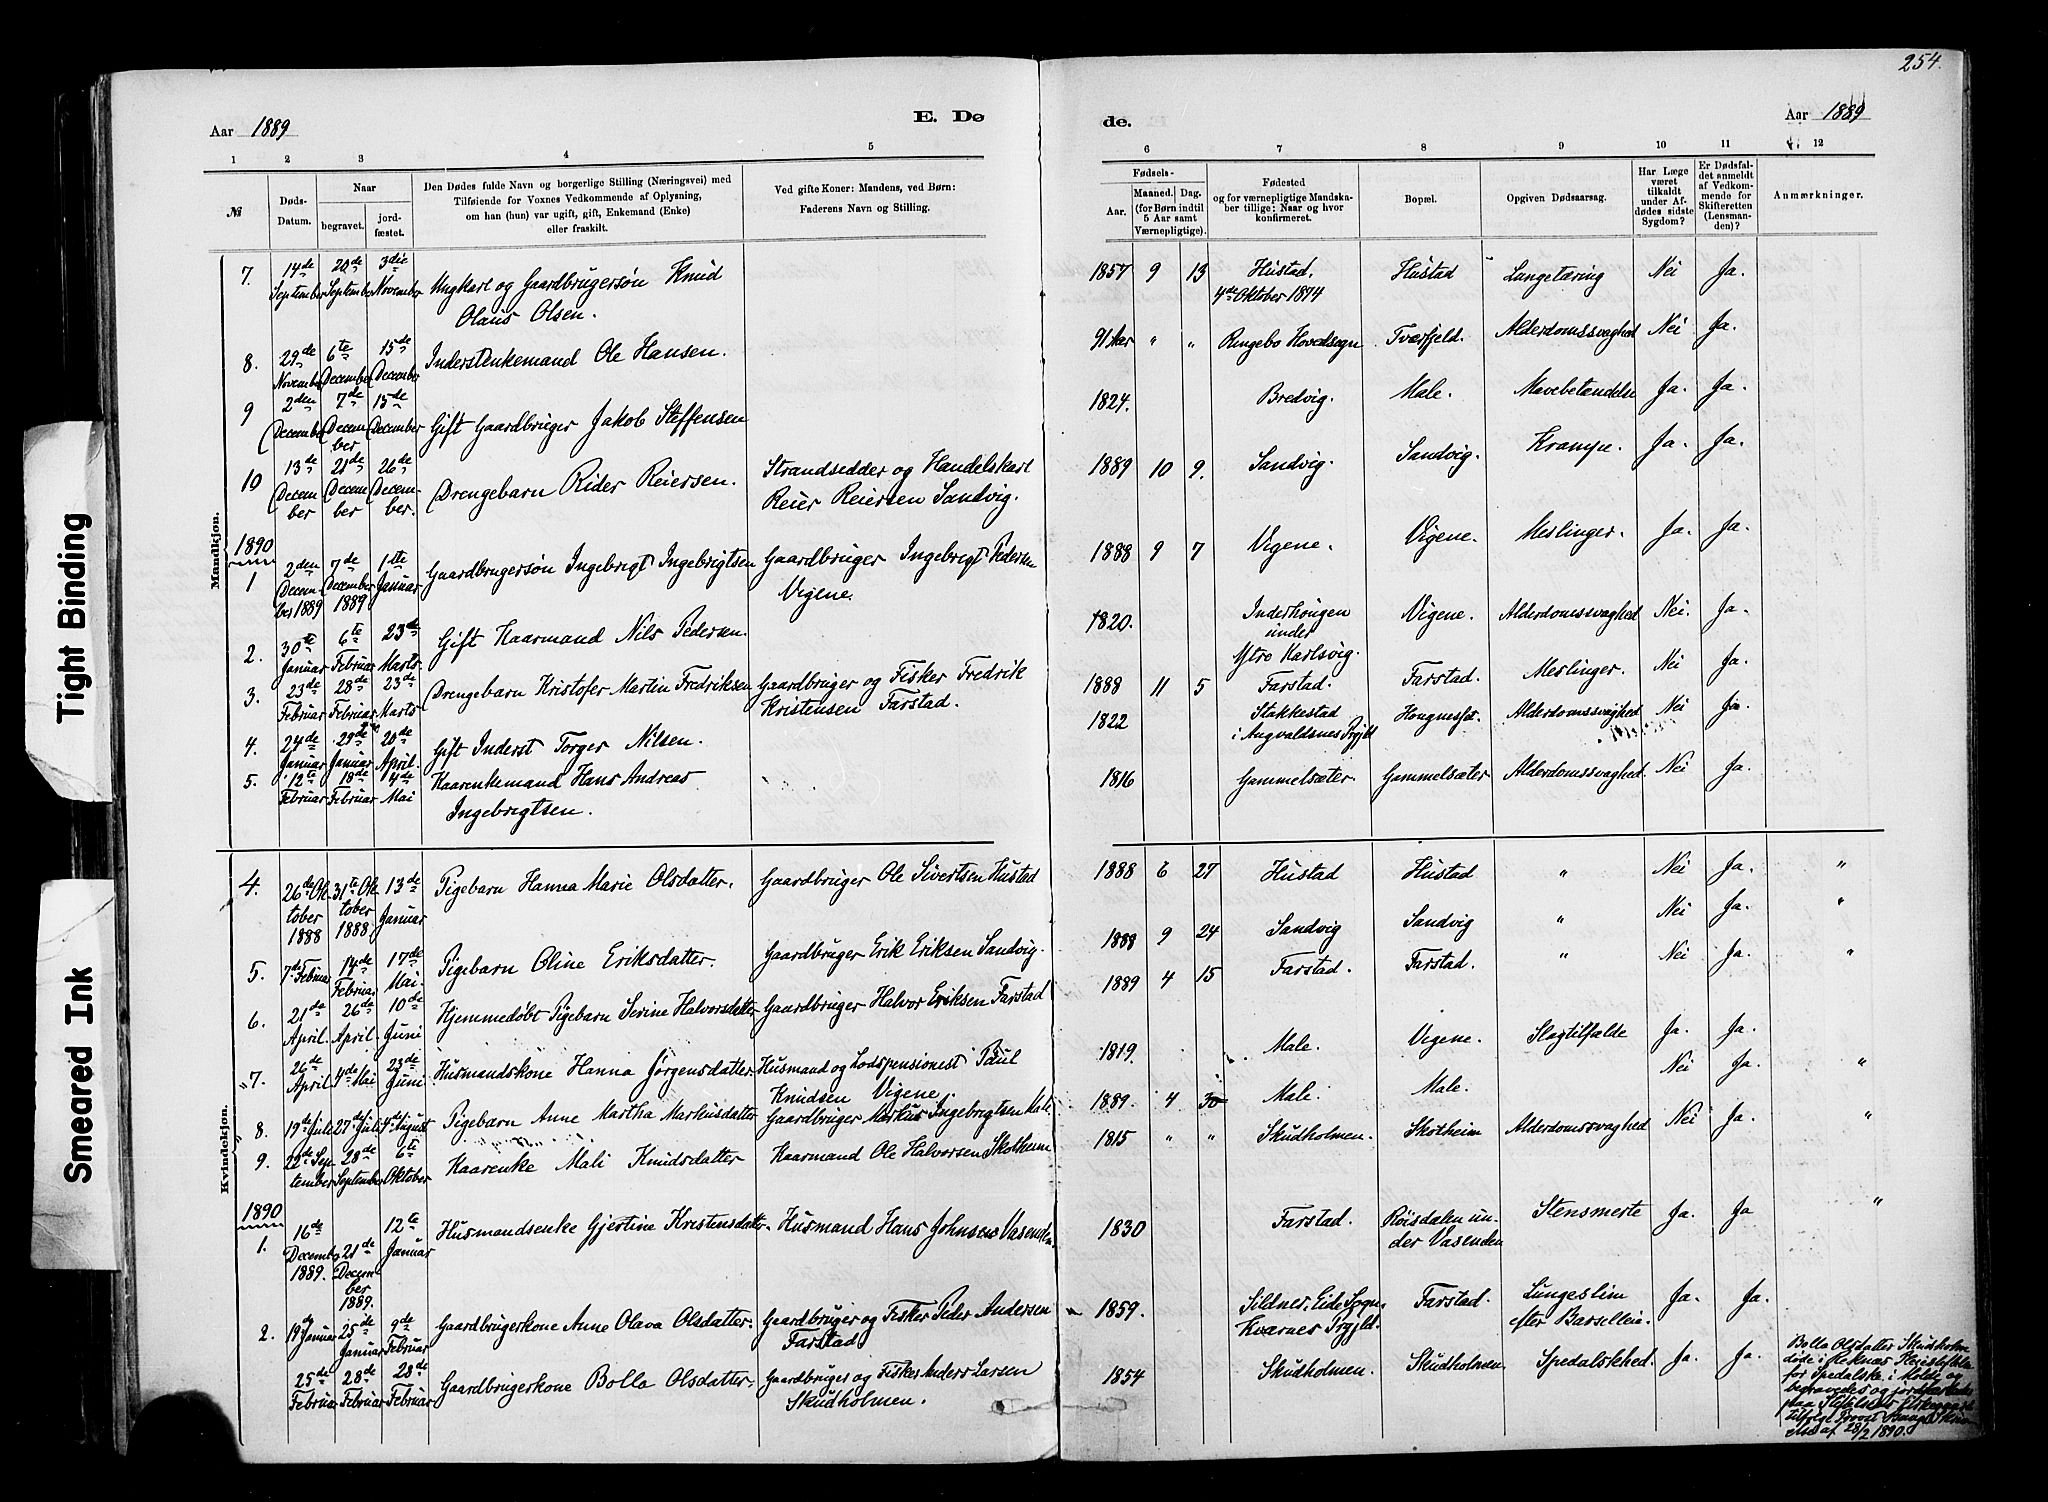 254.
Aar 1889
E. Dø
de.
Aar 1889
1 2 3 4 5
6 7 8 9 10 11 12
№
Døds-
Datum.
Naar
begravet.
jord-
fæstet.
Den Dødes fulde Navn og borgerlige Stilling (Næringsvei) med
Tilføiende for Voxnes Vedkommende af Oplysning,
om han (hun) var ugift, gift, Enkemand (Enke)
eller fraskilt.
Ved gifte Koner: Mandens, ved Børn:
Faderens Navn og Stilling.
Fødsels-
Aar.
Maaned. Dag.
(for Børn indtil
5 Aar samt
Værnepligtige).
Fødested
og for værnepligtige Mandska-
ber tillige: Naar og hvor
konfirmeret.
Bopæl.
Opgiven Dødsaarsag.
Har Læge
været
tilkaldt
under Af-
dødes sidste
Sygdom?
Er Dødsfal-
det anmeldt
af Vedkom-
mende for
Skifteretten
(Lensman-
den)?
Anmærkninger.
Mandkjøn.
7. 14de September 20de September 3die November Ungkarl og Gaardbrugersøn Knud
Olaus Olsen.
1857 9 13 Hustad, 4de Oktober 1874 Hustad Lungetæring Nei Ja.
8. 29de November 6te December 15de December Inderstenkemand Ole Hansen.
91 Aar " " Ringebo Hovedsogn Tverfjeld. Alderdomssvaghed Nei Ja.
9 2den December 7de December 15de December Gift Gaardbruger Jakob Steffensen
1824. Bredvig. Male. Mavebetændelse Ja. Ja.
10 13de December 21de December 26de December. Drengebarn Rider Reiersen.
Strandsidder og Handelskarl
Reier Reiersen Sandvig.
1889 10 9. Sandvig. Sandvig. Krampe. Ja. Ja.
1890
1 2den December 1889 7de December 1889 1ste Januar Gaardbrugersøn Ingebrigt Ingebrigtsen
Gaardbruger Ingebrigt Pedersen
Vigene.
1888 9 7 Vigene. Vigene. Meslinger. Ja. Ja.
2. 30te Januar 6te Februar 23de Marts Gift Kaarmand Nils Pedersen.
1820. Inderhougen
under
Ytre Karlsvig.
Vigene. Alderdomssvaghed Nei. Ja.
3. 23de Februar 28de Februar 23de Marts Drengebarn Kristofer Martin Fredriksen
Gaardbruger og Fisker Fredrik
Kristensen Farstad.
1888 11 5 Farstad. Farstad. Meslinger. Nei Ja.
4. 24de Januar 29de Januar 20de April. Gift Inderst Torger Nilsen.
1822 Stakkestad
i Augvaldsnes Prgjld
Alderdomssvaghed Nei Ja.
5. 12te Februar 18de Februar 4de Mai Kaarenkemand Hans Andreas
Ingebrigtsen.
1816 Gammelsæter. Gammelsæter Alderdomssvaghed Nei Ja.
Kvindekjøn.
4. 26de Oktober 1888 31te Oktober 1888 13de Januar Pigebarn Hanna Marie Olsdatter.
Gaardbruger Ole Sivertsen Hustad
1888 6 27 Hustad Hustad " Nei Ja. "
5. 7de Februar 14de Februar 17de Mai. Pigebarn Oline Eriksdatter.
Gaardbruger Erik Eriksen Sandvig.
1888 9 24 Sandvig Sandvig " Nei Ja. "
6. 21de April. 26de April. 10de Juni Hjemmedøbt Pigebarn Serine Halvorsdatter
Gaardbruger Halvor Eriksen Farstad
1889 4 15 Farstad. Farstad. " Nei Ja. "
7. 26de April 4de Mai 23de Juni Husmandskone Hanna Jørgensdatter
Husmand og Lodspensionist Paul
Knudsen Vigene.
1819. Male. Vigene. Slagtilfælde Ja. Ja.
8. 19de Juli 27de Juli 4de August Pigebarn Anne Martha Markusdatter
Gaardbruger Markus Ingebrigtsen Male
1889. 4 30 Male. Male. Nei Ja. "
9. 22de September 28de September 6te Oktober Kaarenke Mali Knudsdatter
Kaarmand Ole Halvorsen Skotheim
1815 " " Skudholmen. Skotheim Alderdomssvaghed Nei Ja. "
1890
1. 16de December 1889. 21de December 1889. 12te Januar Husmandsenke Gjertine Kristensdatter.
Husmand Hans Johnsen Vasenden.
1830 Farstad. Røisdalen un-
der Vasenden
Stensmerte Ja. Ja "
2. 19de Januar 25de Januar 9de Februar Gaardbrugerkone Anne Olava Olsdatter.
Gaardbruger og Fisker Peder Andersen
Farstad
1859. Sildnes, Eide Sogn,
Kvernes Prgjld.
Farstad. Lungeslim
efter Barselleie.
Ja. Ja.
25de Februar 28de Februar 28de Februar Gaardbrugerkone Bolla Olsdatter.
Gaardbruger og Fisker Anders Larsen
Skudholmen.
1854 Skudholmen. Skudholmen. Spedalskhed. Ja. Ja.
Bolla Olsdatter Skudholm
døde i Reknæs Pleiestiftelse
for Spedalske i Molde og
begravedes og jordfæstedes
paa Stiftelsens
tilfølge
af 28/2 1890.
Tight Binding
Smeared Ink